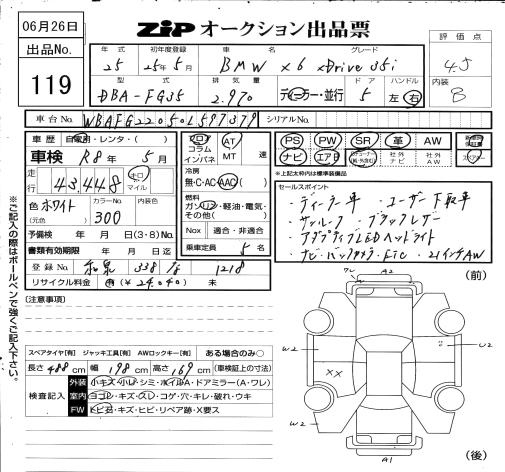 06月26日
出品No.
119
ZiP オークション出品票
評価点
4.5
内装
B
年式 初年度登録 車名 グレード
25 25年5月 BMW X6 xDrive 35i
型式 排気量 ドア ハンドル
DBA-FG35 2,970 ディーラー・並行 5 左 右
車台No. WBAFG22050L597379 シリアルNo.
車歴 自家用・レンタ・( )
車検 R8年5月
走行 43,448 キロ マイル
色 ホワイト (元色) カラーNo. 300 内装色
予備検 年 月 日(3・8)No.
書類有効期限 年 月 日迄
登録No. 和泉 338 1218
リサイクル料金 有(¥24,040) 未
フロア コラム インパネ AT MT 速
冷房 無・C・AC・AAC
燃料 ガソリン・軽油・電気・その他( )
Nox 適合・非適合
乗車定員 5名
PS PW SR 革 AW
ナビ エアB 社外ナビ 社外AW
※上記太枠内は標準装備品
セールスポイント
・ディーラー車 ・ユーザー下取車
・サンルーフ ・ブラックレザー
・アダプティブLEDヘッドライト
・ナビ・バックカメラ・ETC・21インチAW
(注意事項)
スペアタイヤ[有] ジャッキ工具[有] AWロックキー[有] ある場合のみ○
長さ488cm 幅198cm 高さ169cm (車検証上の寸法)
検査記入
外装 小キズ・小凹・シミ・ホイルA・ドアミラー(A・ワレ)
室内 ヨゴレ・キズ・スレ・コゲ・穴・キレ・破れ・ウキ
FW トビ石・キズ・ヒビ・リペア跡・X要ス
※ご記入の際はボールペンで強くご記入下さい。
(前)
ワレ A2
W2 U2
XX
W2 W2
A1
(後)